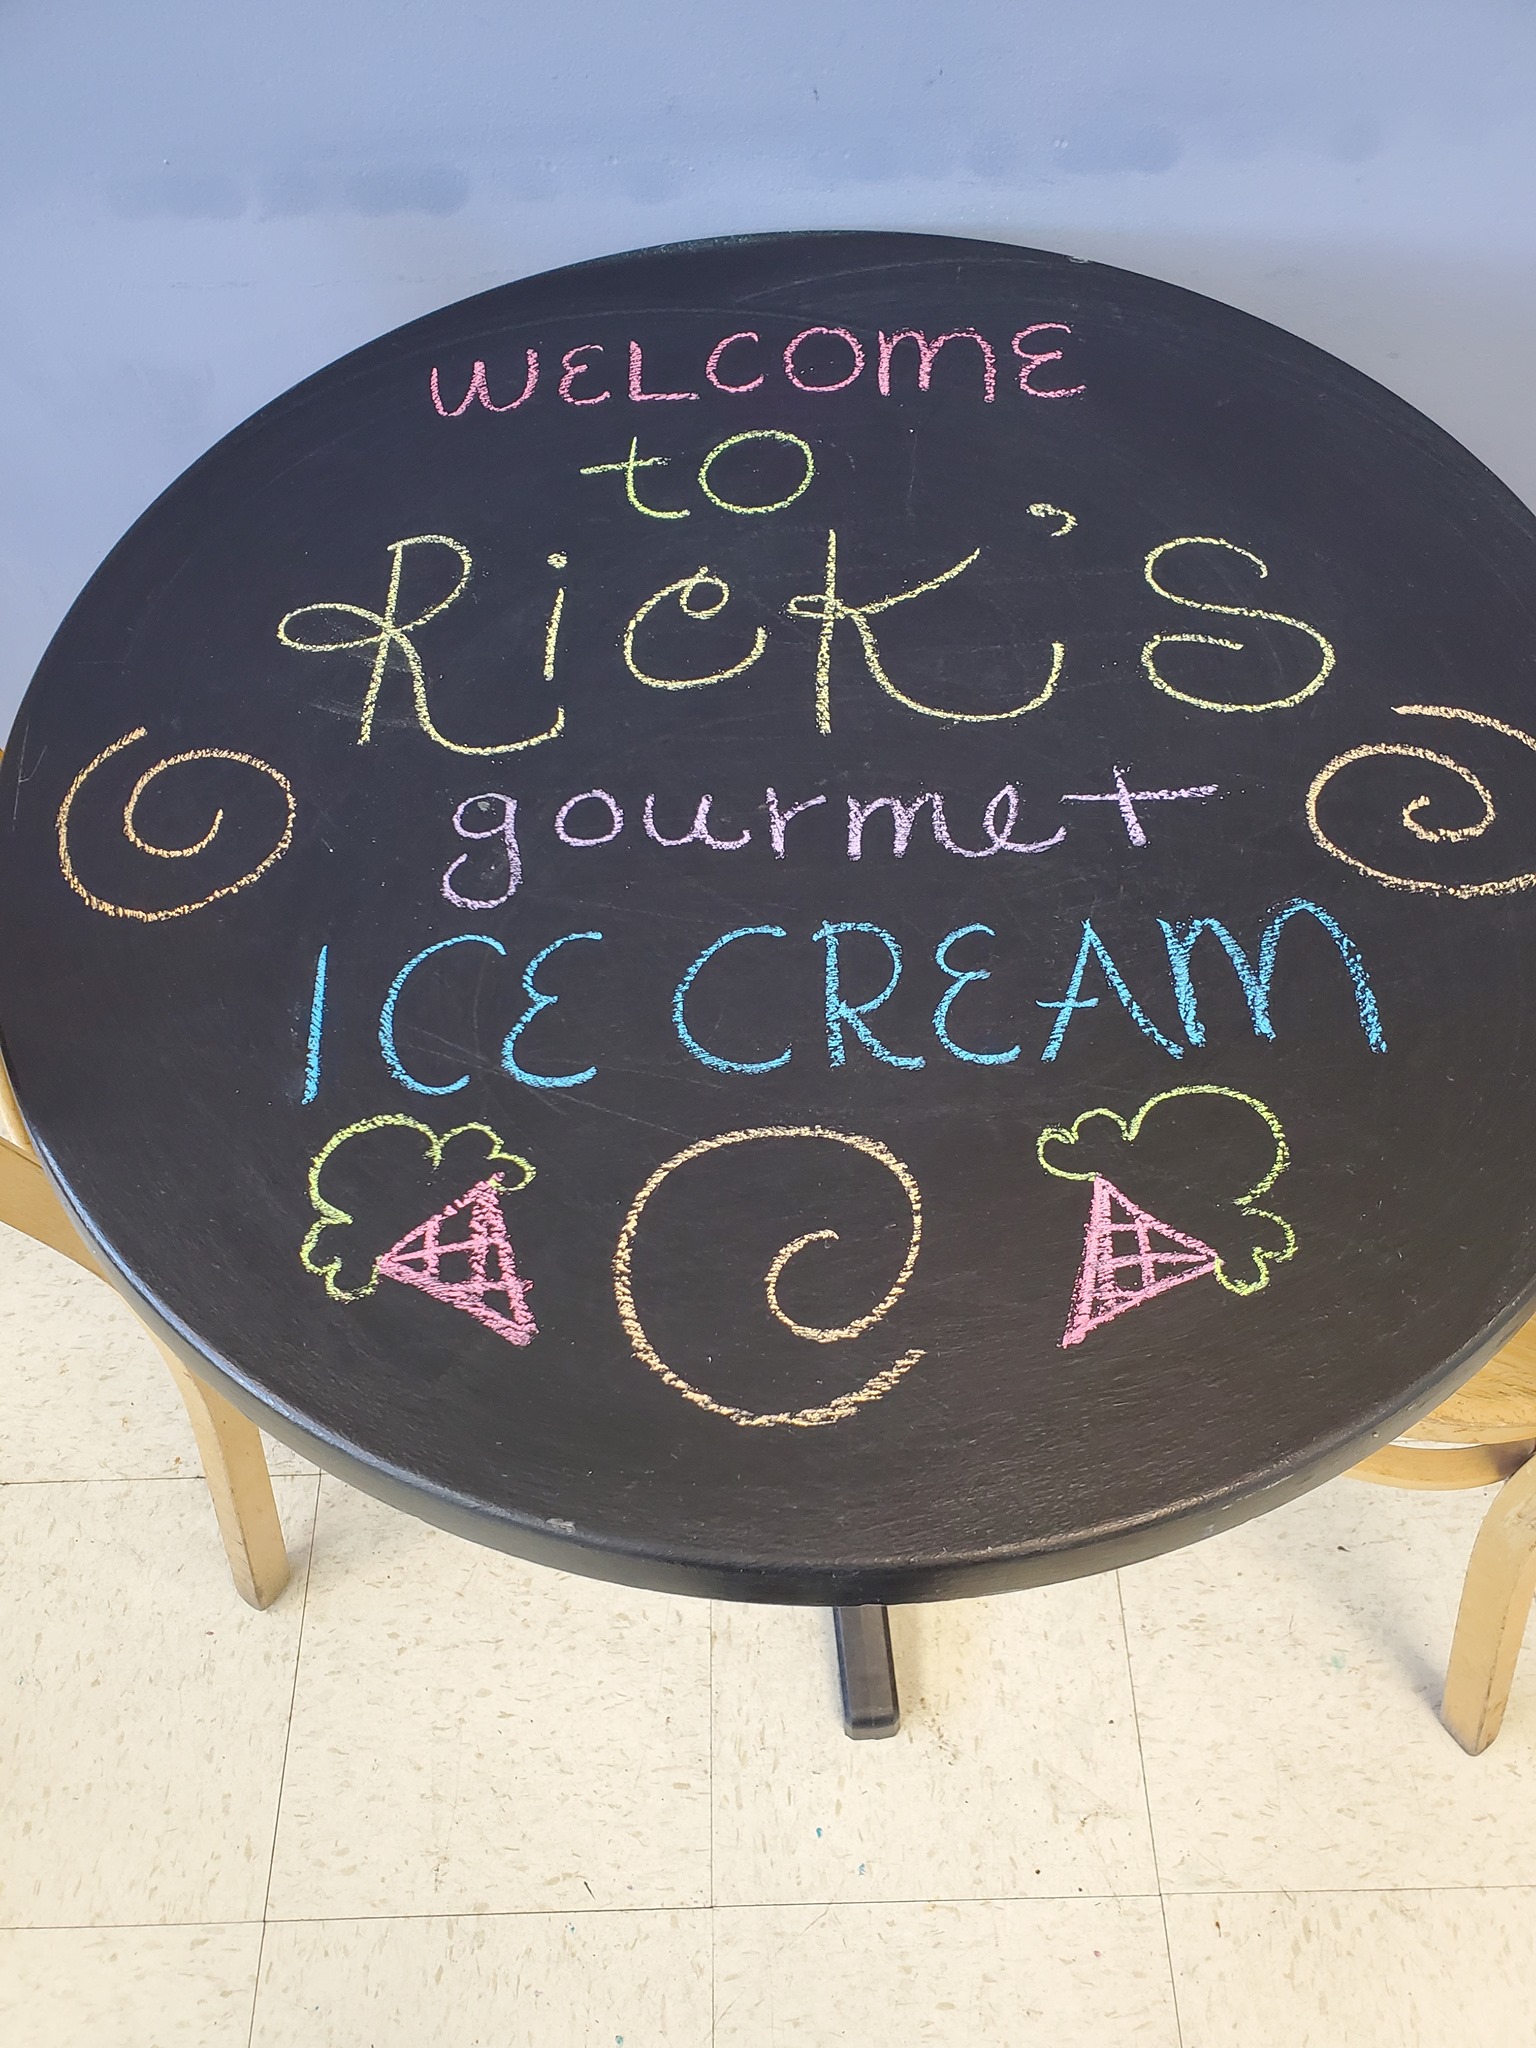 WELCOME
to
Rick's
gourmet
ICE CREAM